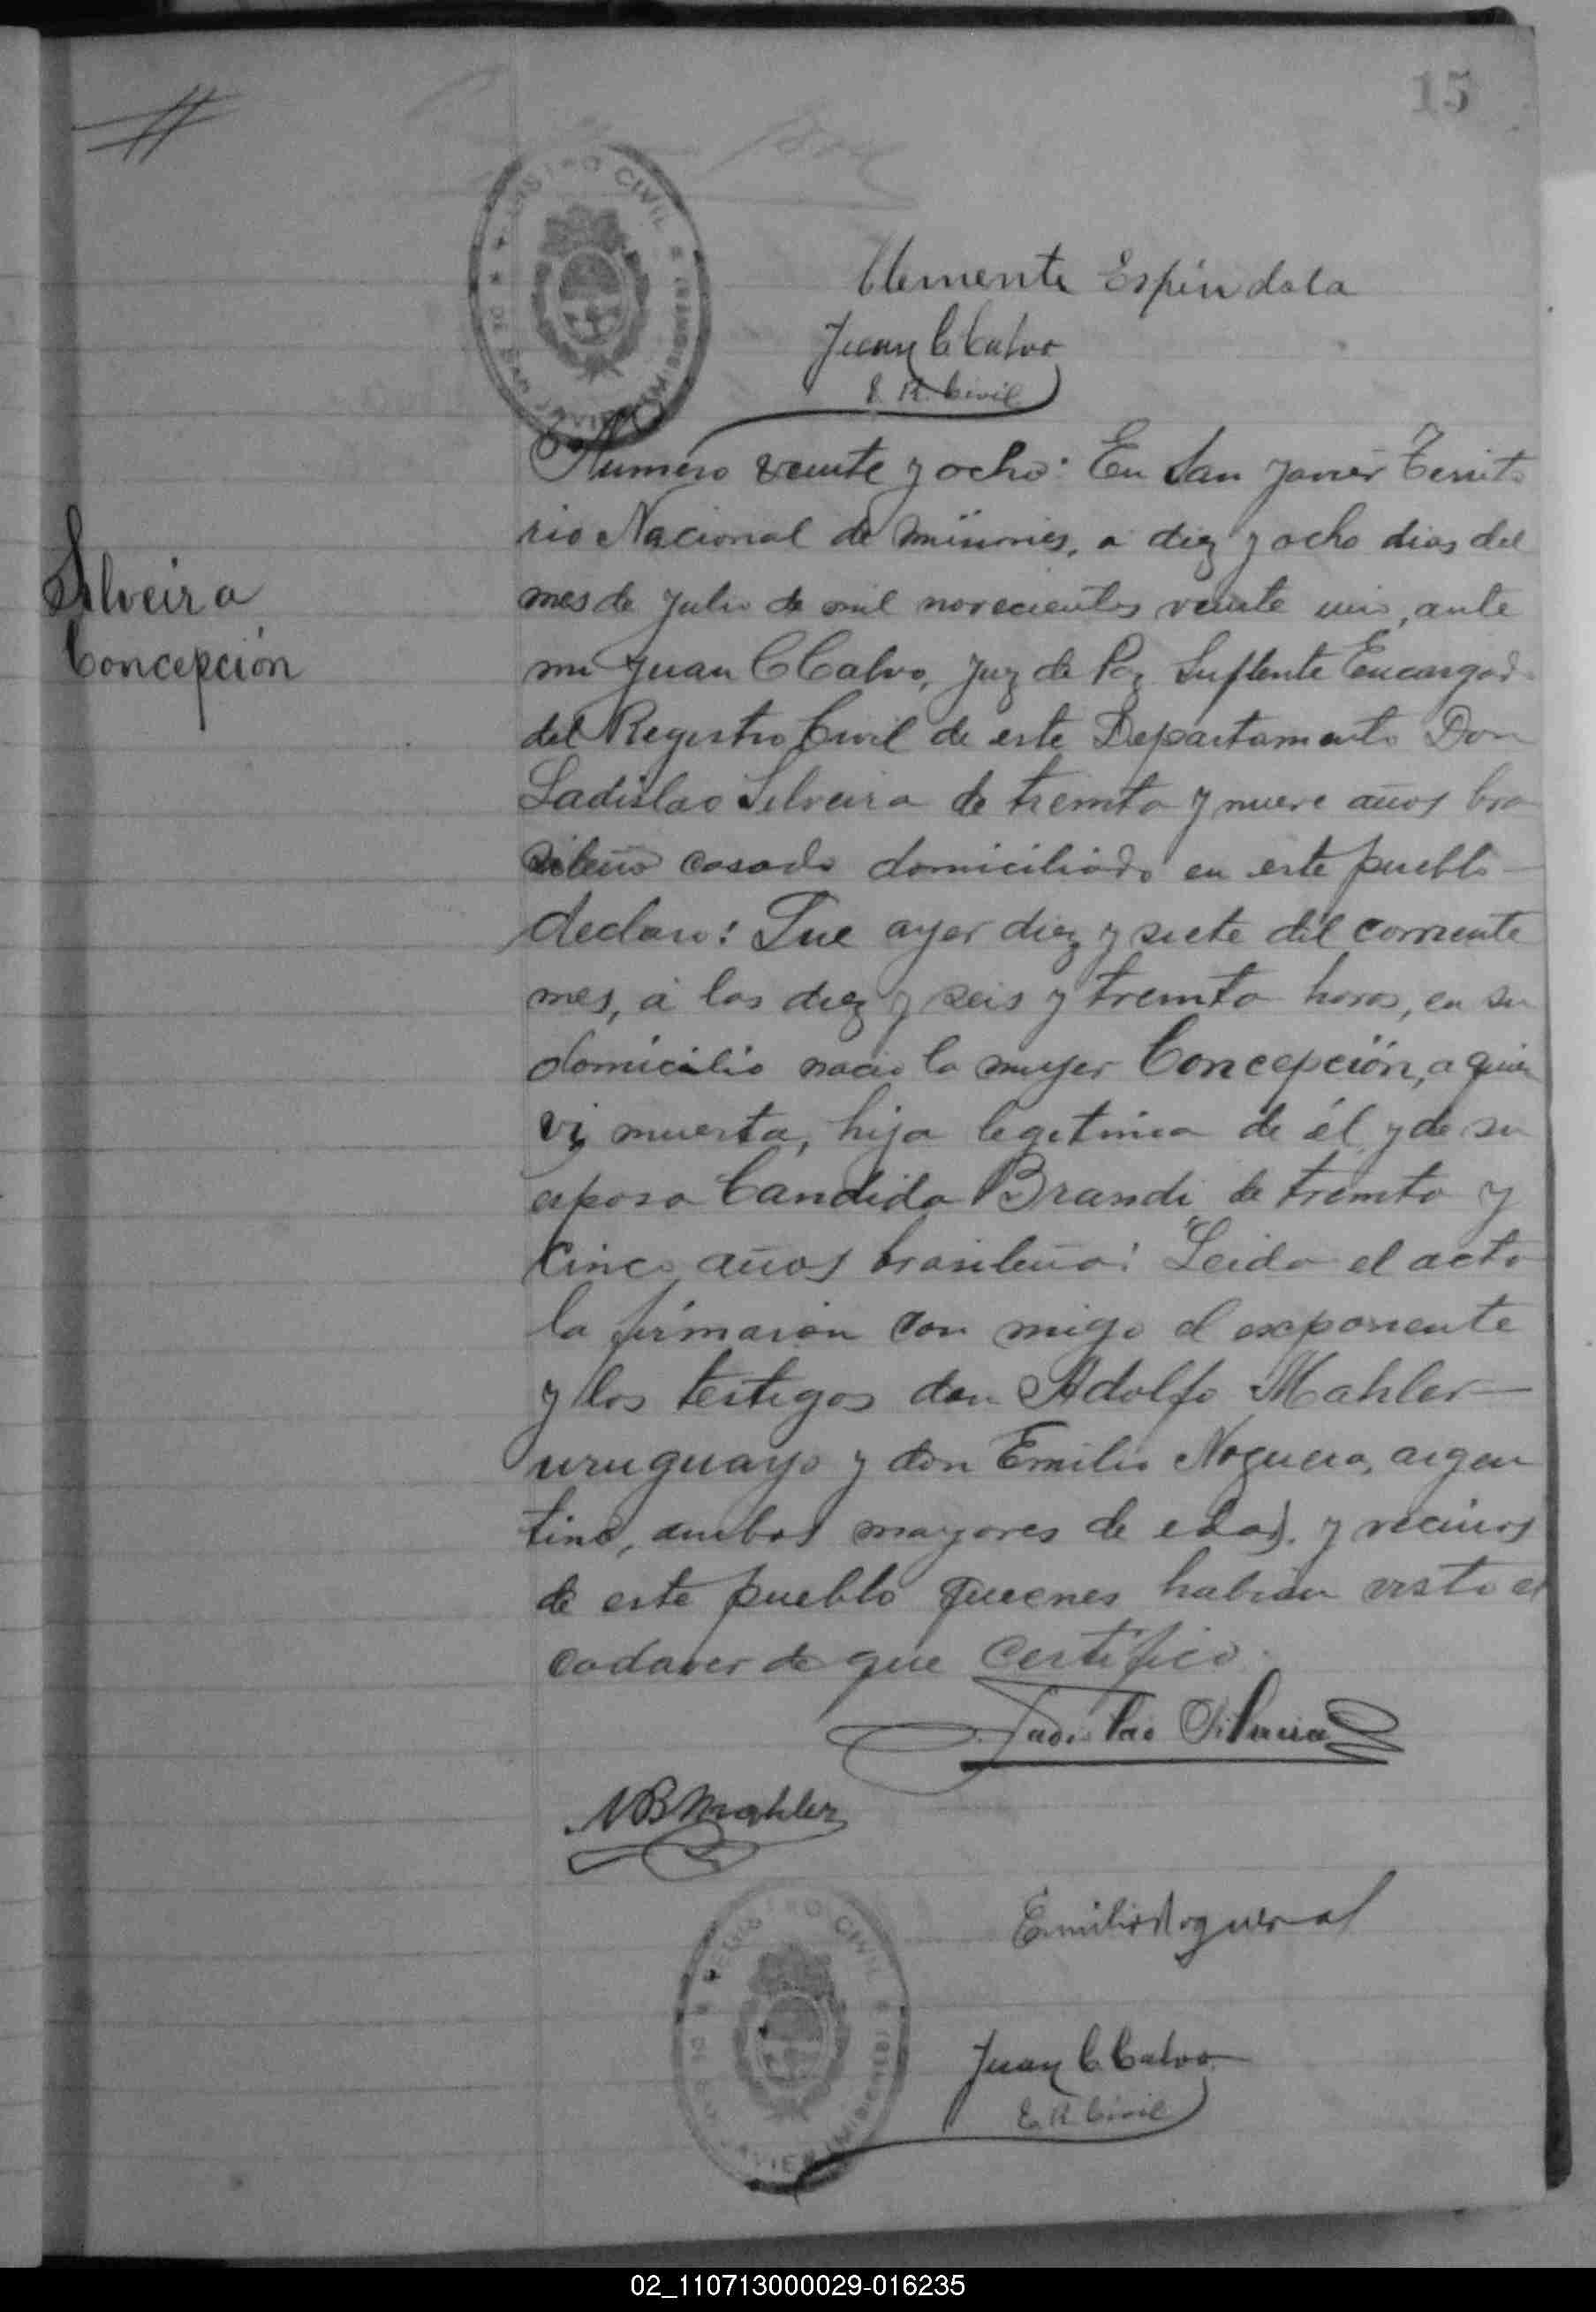 15
REGISTRO CIVIL
DE SAN JAVIER (MISIONES)
Clemente Espíndola
Juan C Calvo
E. R. Civil
Silveira
Concepción
Numero veinte y ocho: En San Javier Territo
rio Nacional de Misiones, a diez y ocho dias del
mes de Julio de mil novecientos veinte uno, ante
mi Juan C Calvo, Juez de Paz Suplente Encargado
del Registro Civil de este Departamento Don
Ladislao Silveira de treinta y nueve años bra
sileño casado domiciliado en este pueblo
declaro: Que ayer diez y siete del corriente
mes, á las diez y seis y treinta horas, en su
domicilio nacio la mujer Concepción, a quien
vi muerta, hija legitima de él y de su
esposa Candida Brandi de treinta y
cinco años brasileña: Leida el acta
la firmaron con migo el exponente
y los testigos don Adolfo Mahler
uruguayo y don Emilio Noguera, argen
tino, ambos mayores de edad. y vecinos
de este pueblo quienes habian visto el
cadaver de que certifico.
Ladislao Silveira
Mahler
Emilio Noguera
REGISTRO CIVIL
Juan C. Calvo
E. R. Civil
02_110713000029-016235